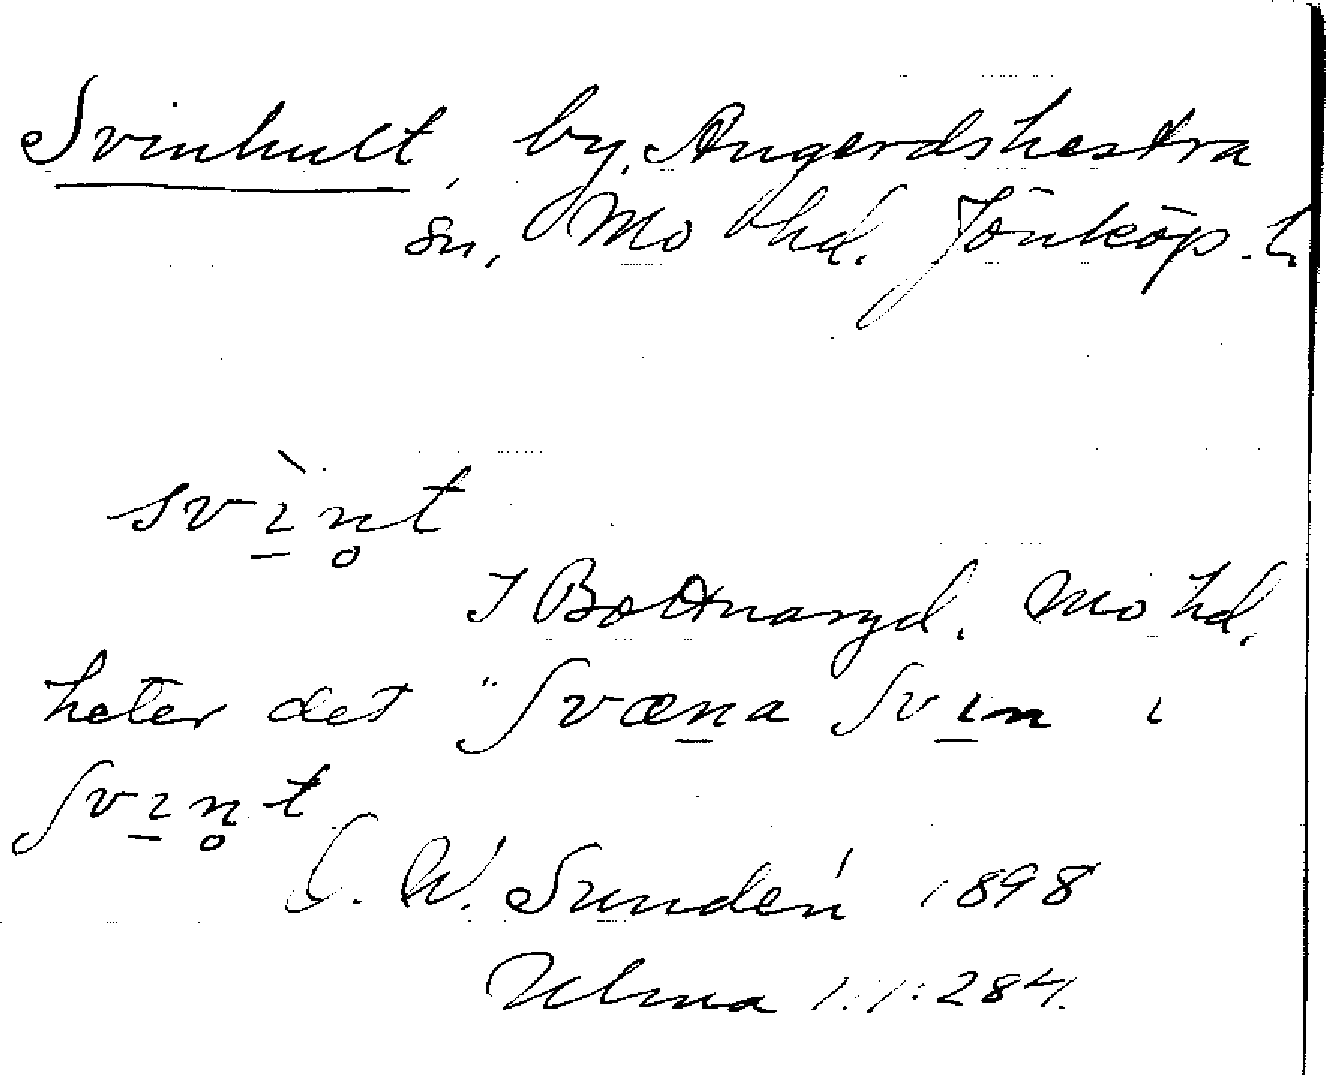 Svinhult, by, Angerdshestra
sn, Mo hd. Jönköp. l.
svı̱̀n̥t
I Bottnaryd. Mo hd.
heter det "Svæṉa Svı̱n ı
Svı̱n̥t
C. W. Sundén 1898
Ulma 1:1:284.